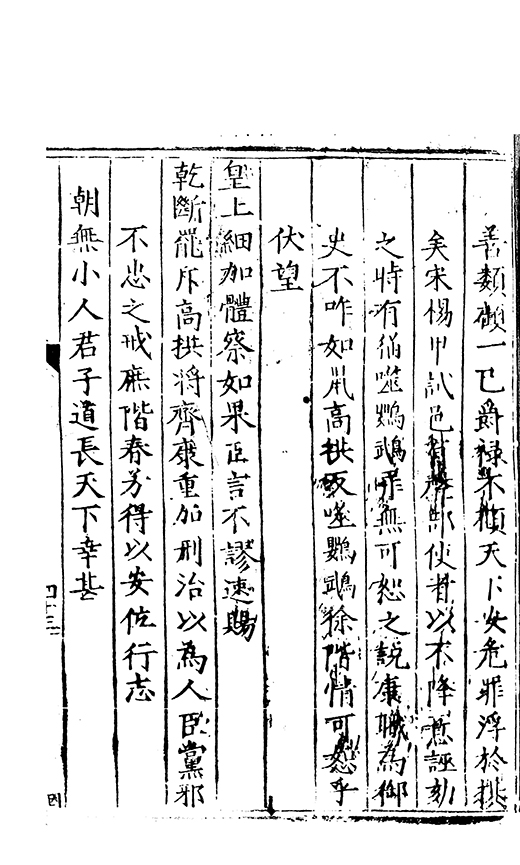 善類顧一已爵祿不顧天下安危罪浮於拱
矣宋惕甲試邑使者以不降意誣劾
之時有猫噬鸚鵡罪無可恕之說康職為御
史不咋如鼠高拱反噬鸚鵡徐階情可恕乎
伏望
皇上細加體察如果臣言不謬速賜
乾斷罷斥高拱將齊康重加刑治以為人臣黨邪
不忠之戒庶階春芳得以安位行志
朝無小人君子道長天下幸甚
四十三